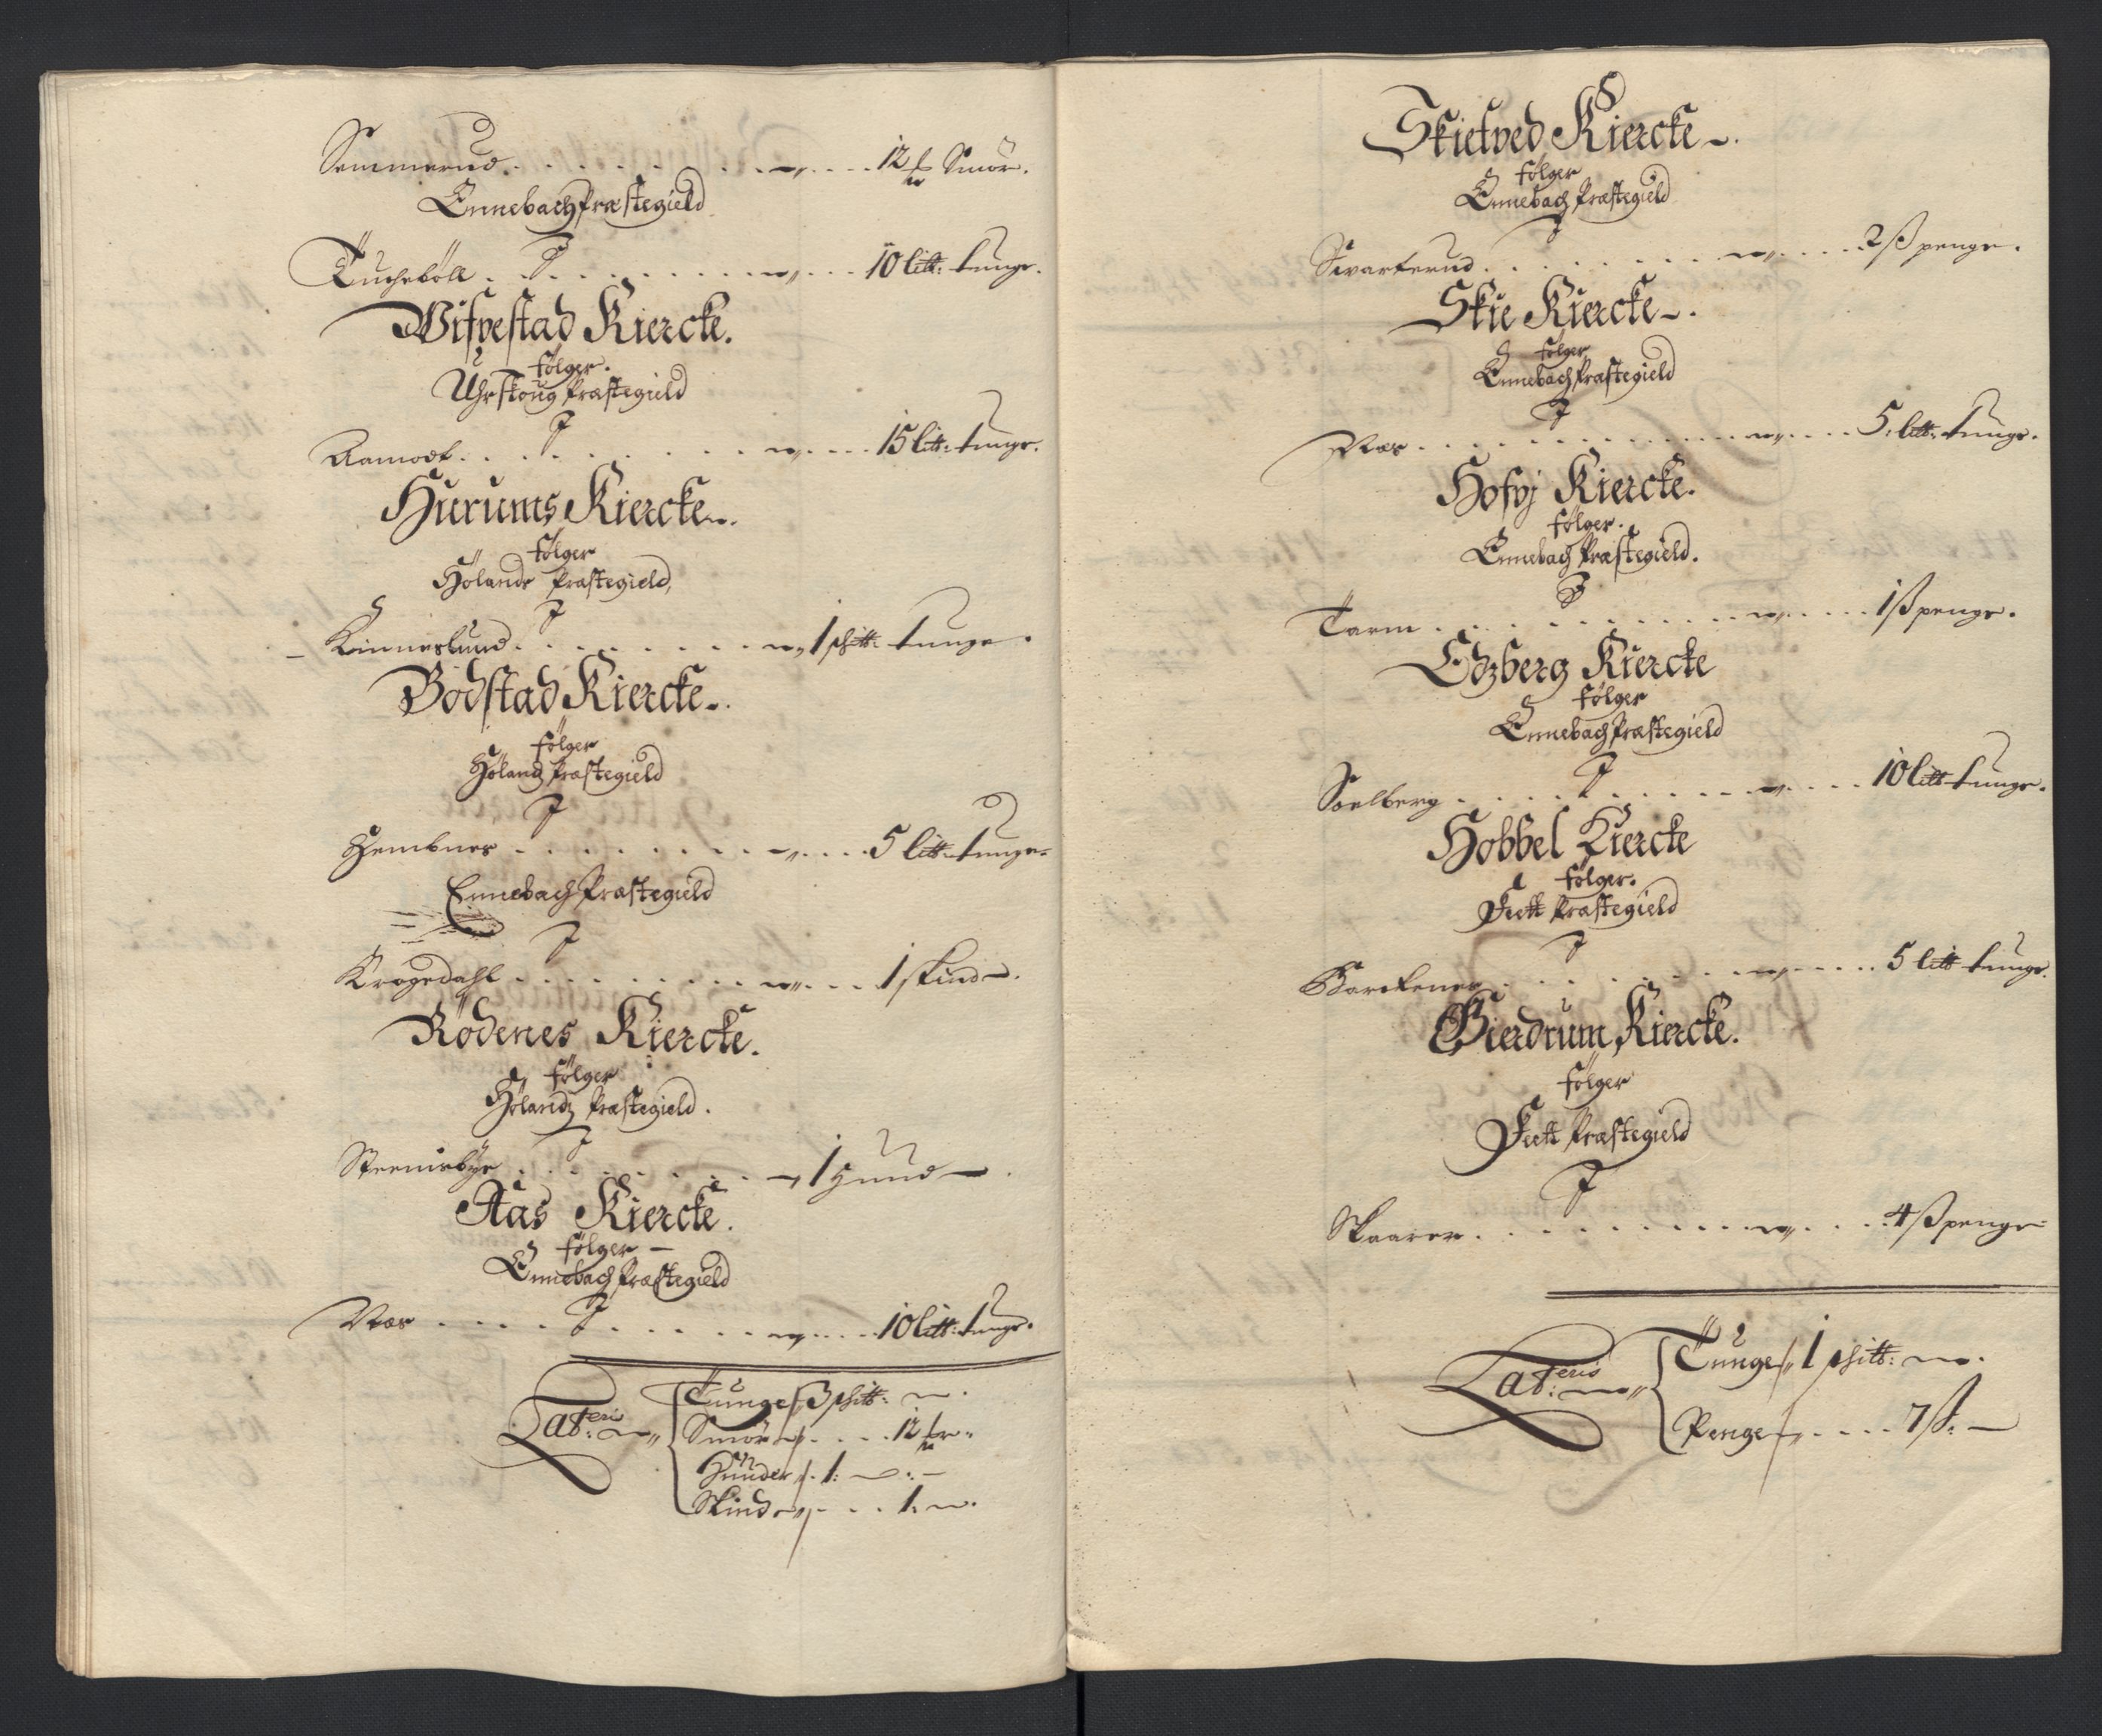 Semmerud . . . . . . . . 12 Smör.
Ennebach Præstegield
J
Kuchebøll . . . . . . . . 10 litt: tunge.
Wifvestad Kiercke.
følger.
Uhrskoug Præstegield
J
Aamodt . . . . . . . . 15 litt: tunge.
Hurums Kiercke.
følger
Hølands Præstegield,
J
Kinneslund . . . . . . . 1 schitt: tunge.
Bødstad Kiercke.
følger
Hølandz Præstegield
J
Hembnes . . . . . . . . 5 litt: tunge
Ennebach Præstegield
J
Krogedahl . . . . . . . . 1 skind.
Rødenes Kiercke.
følger
Hølandz Præstegield.
J
Steensbye . . . . . . . 1 Hund
Aas Kiercke.
følger
Ennebach Præstegield
J
Næs . . . . . . . . 10 litt: tunge.
Lateris
Tunge 3 schitt:
Smör . . . . 12
Hunder . 1:
Skind . . . 1.
Skiefved Kiercke.
følger
Ennebach Præstegield
J
Swarterud . . . . . . . . 2 ß penge.
Skie Kiercke.
følger
Ennebach Præstegield
J
Næs . . . . . . . . 5. litt: tunge.
Hofvj Kiercke.
følger.
Ennebach Præstegield.
J
Tarm . . . . . . . . 1 ß penge.
Edzberg Kiercke
følger
Ennebach Præstegield
J
Soelberg . . . . . . . . 10 litt tunge.
Hobbel Kiercke
følger.
Feett Præstegield
J
Barckenes . . . . . . . . 5 litt tunge.
Gierdrum Kiercke.
følger
Feett Præstegield
J
Skaarer . . . . . . . . 4 ß penge
Lateris
Tunge 1 schitt:
Penge . . . . 7 ß: